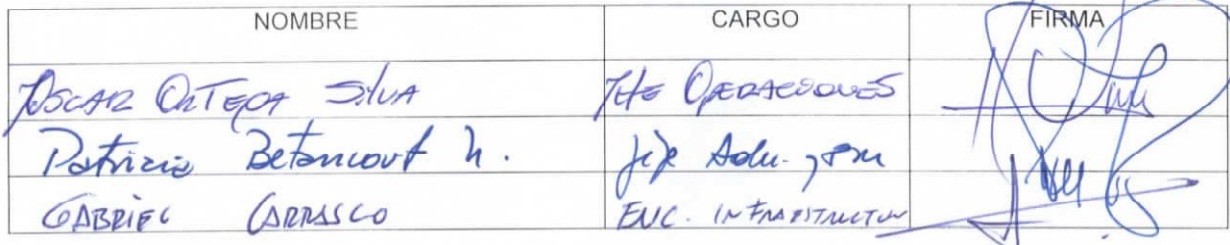 NOMBRE CARGO FIRMA
OSCAR ORTEGA SILVA JEFE OPERACIONES
Patricia Betancourt h. Jefe Adm.
GABRIEL CARRASCO ENC. INFRAESTRUCTUR